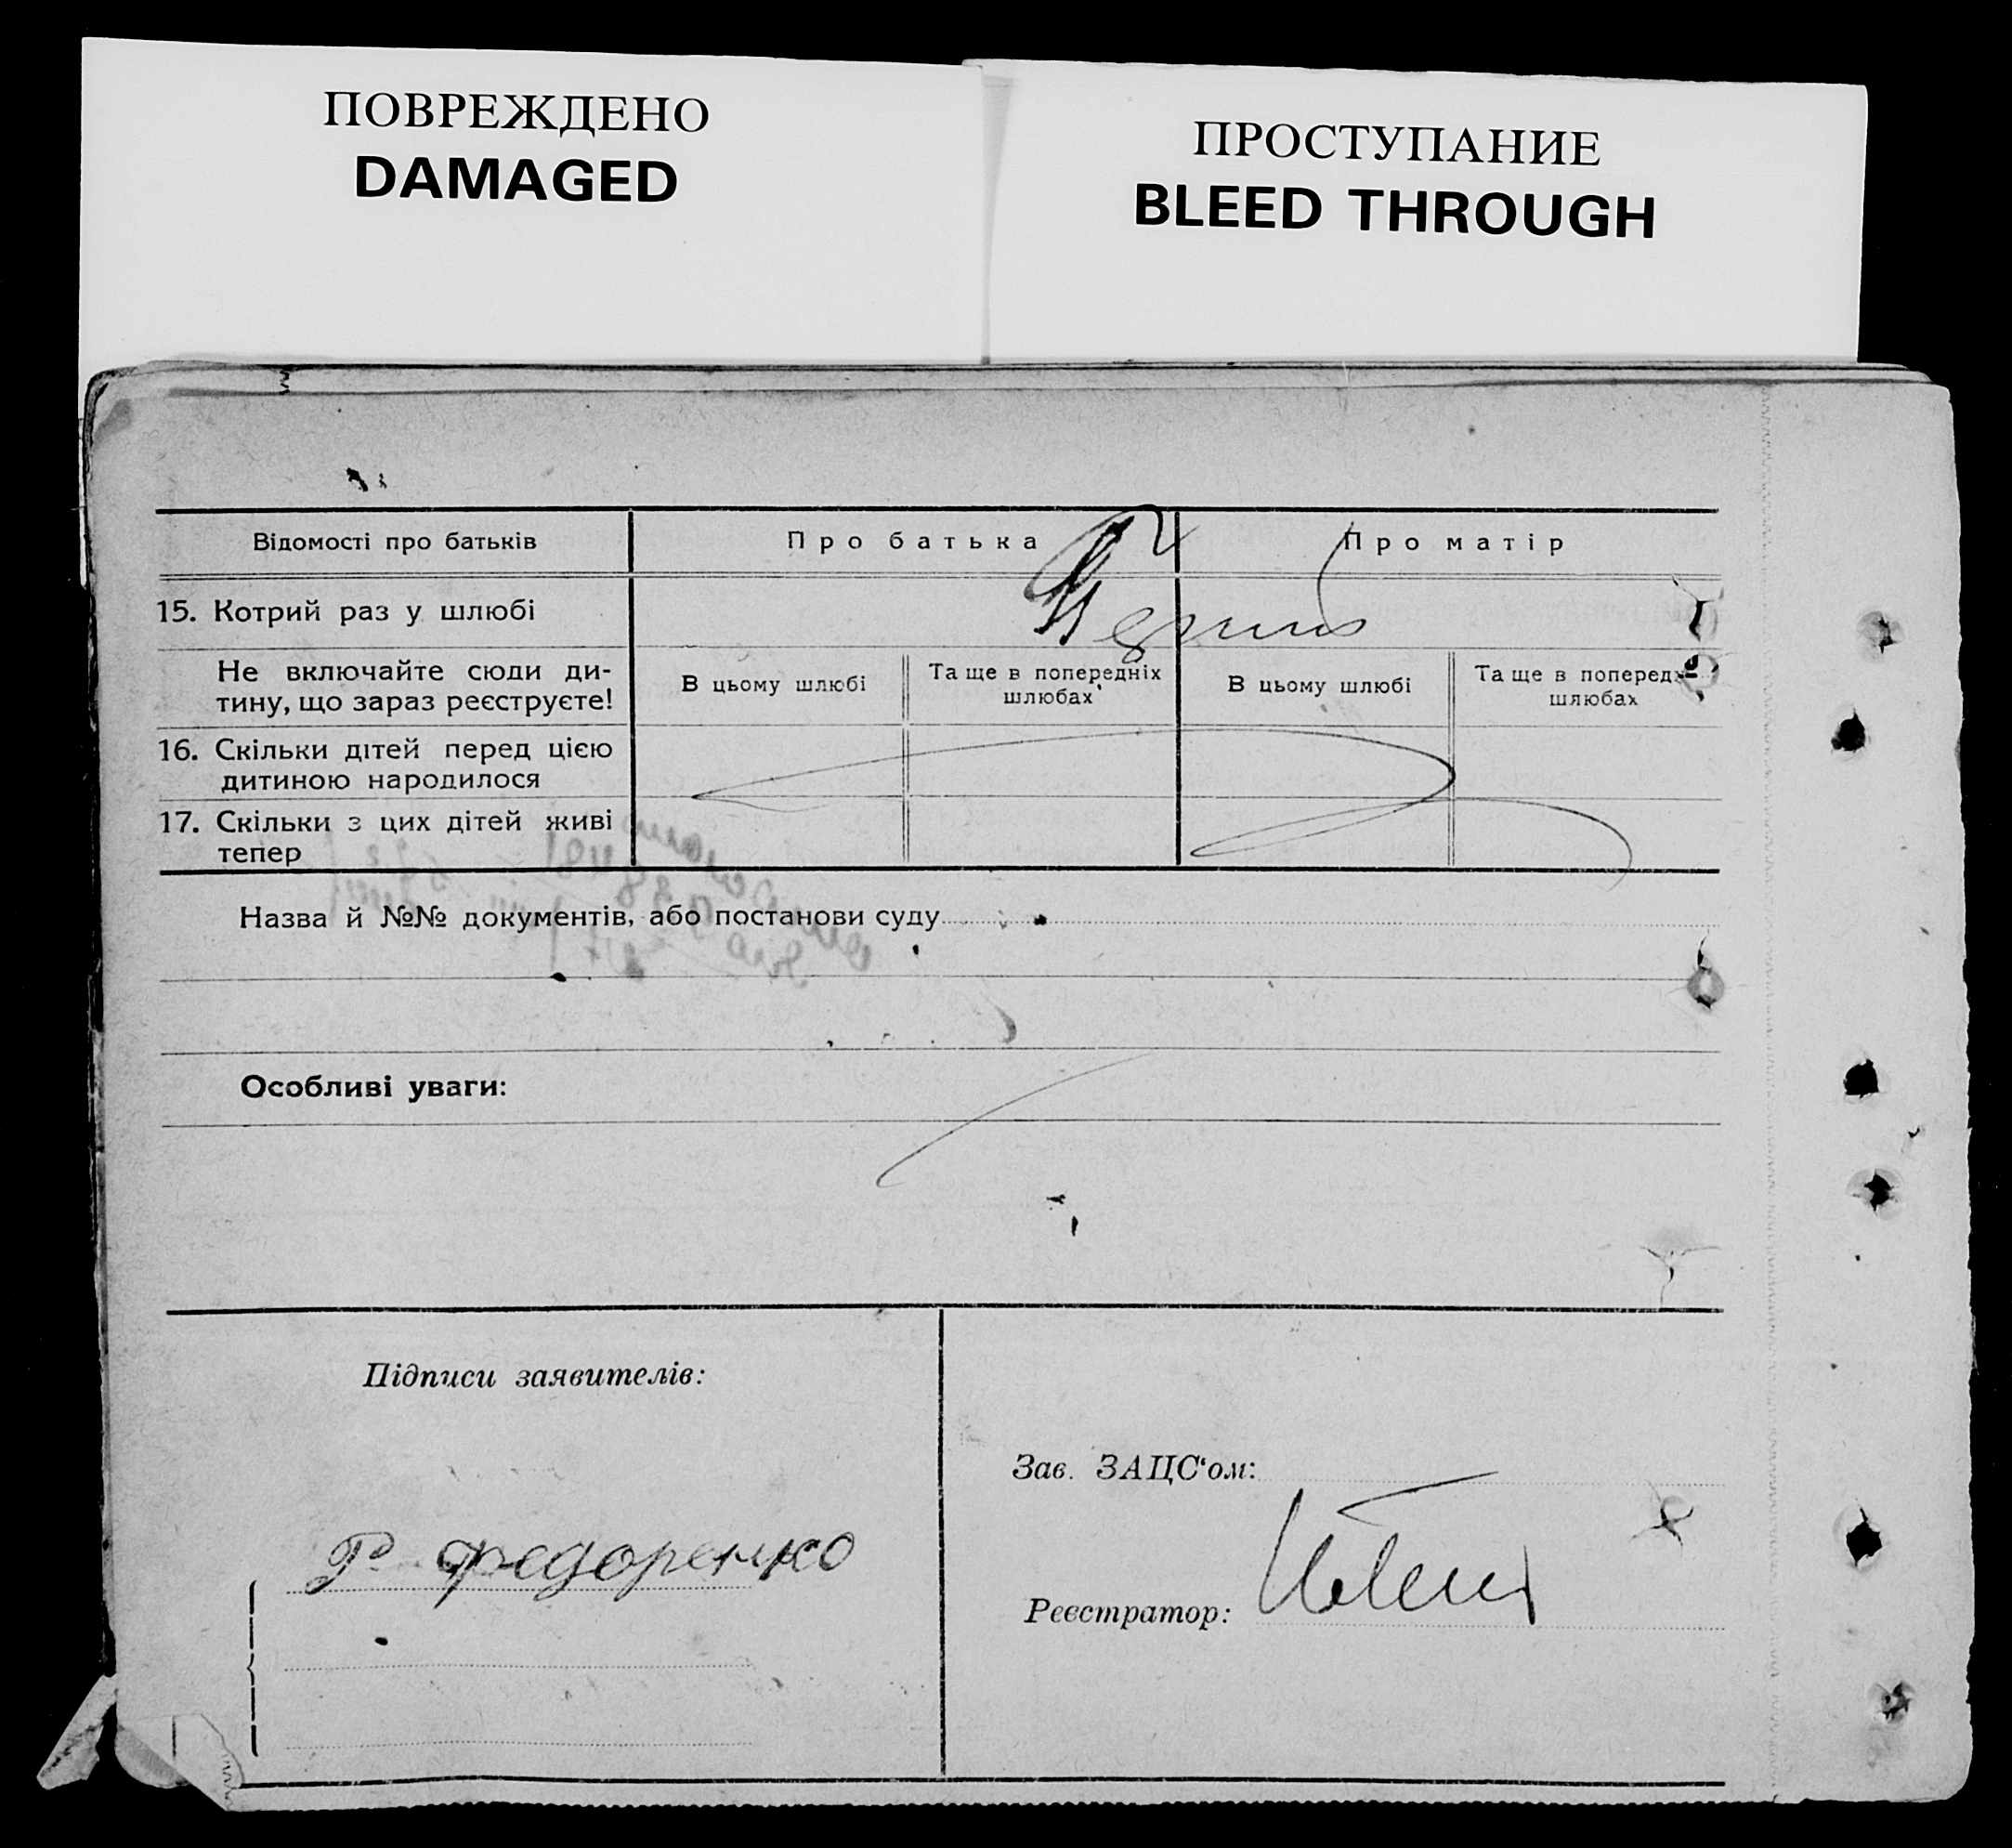 ПОВРЕЖДЕНО
DAMAGED
ПРОСТУПАНИЕ
BLEED THROUGH
Відомості про батьків
Про батька
Про матір
15. Котрий раз у шлюбі
Не включайте сюди ди-
тину, що зараз реєструєте!
В цьому шлюбі
Та ще в попередніх
шлюбах
В цьому шлюбі
Та ще в поперед
шлюбах
16. Скільки дітей перед цією
дитиною народилося
17. Скільки з цих дітей живі
тепер
Назва й №№ документів, або постанови суду
Особливі уваги:
Підписи заявителів:
Р. Федоренко
Зав. ЗАЦС'ом:
Реєстратор: